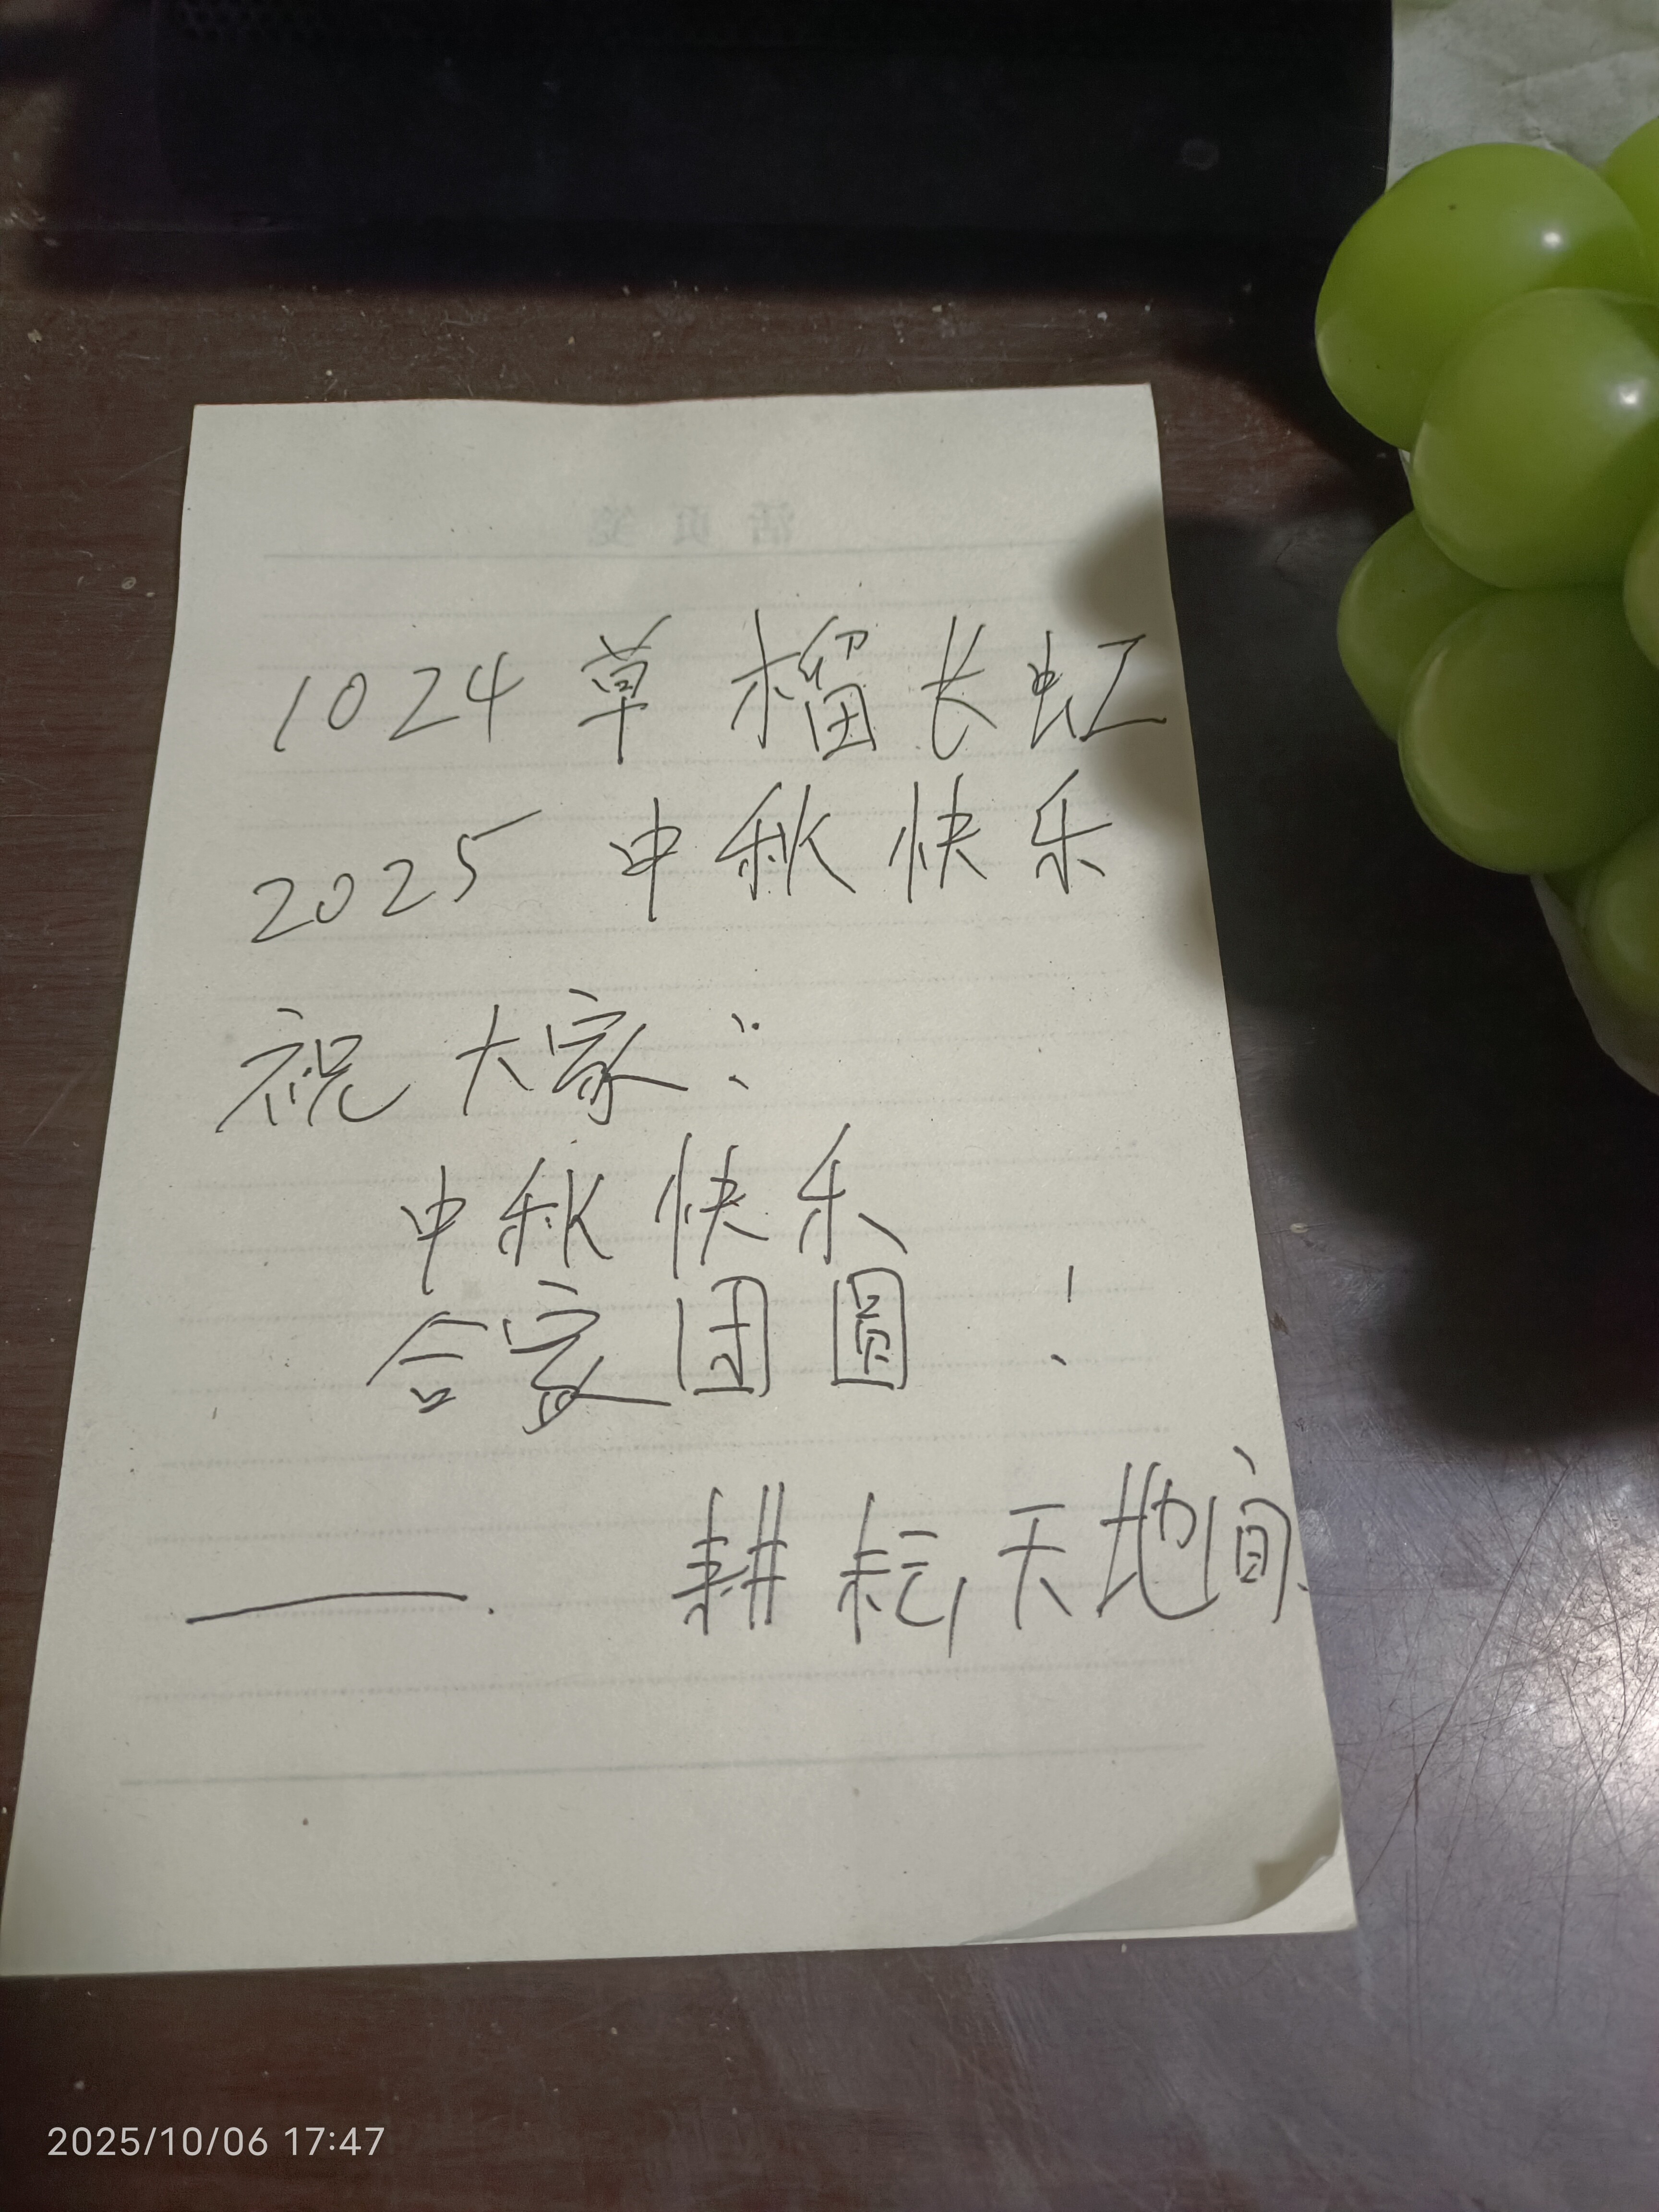 活页笺
1024草榴长虹
2025中秋快乐
祝大家:
中秋快乐
合家团圆!
——. 耕耘天地间.
2025/10/06 17:47